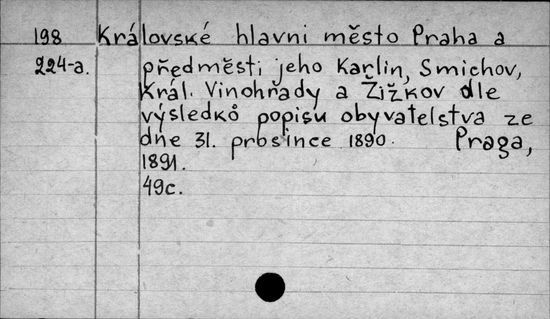 198 Královské hlavni město Praha a
224-a. předměsti jeho Karlin, Smichov,
Král. Vinohřady a Žižkov dle
výsledků popisu obyvatelstva ze
dne 31. prosince 1890. Praga,
1891.
49c.